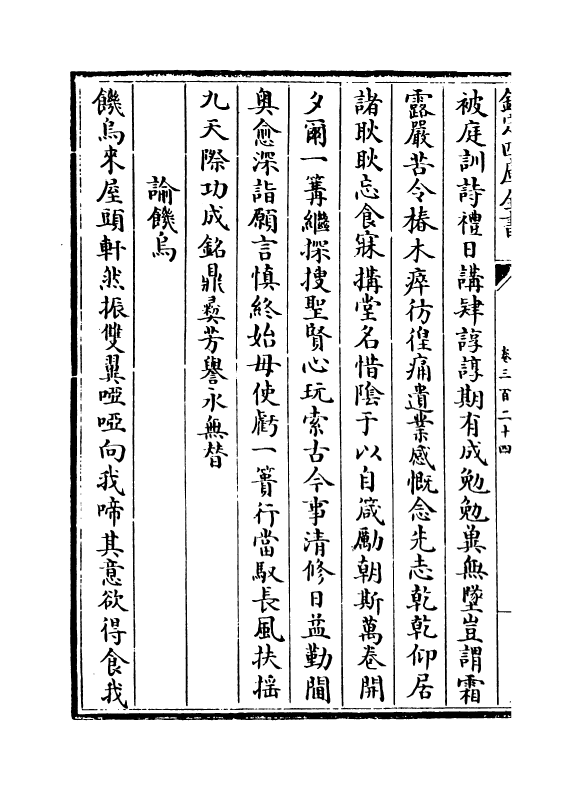 欽定四庫全書
卷三百二十四
被庭訓詩禮日講肄諄諄期有成勉勉冀無墜豈謂霜
露嚴苦令椿木瘁彷徨痛遺業感慨念先志乾乾仰居
諸耿耿忘食寐搆堂名惜隂于以自箴勵朝斯萬卷開
夕爾一篝繼探搜聖賢心玩索古今事清修日益勤閫
奥愈深詣願言慎終始毋使虧一簣行當馭長風扶揺
九天際功成銘鼎彛芳譽永無替
論饑烏
饑烏來屋頭軒然振雙翼啞啞向我啼其意欲得食我